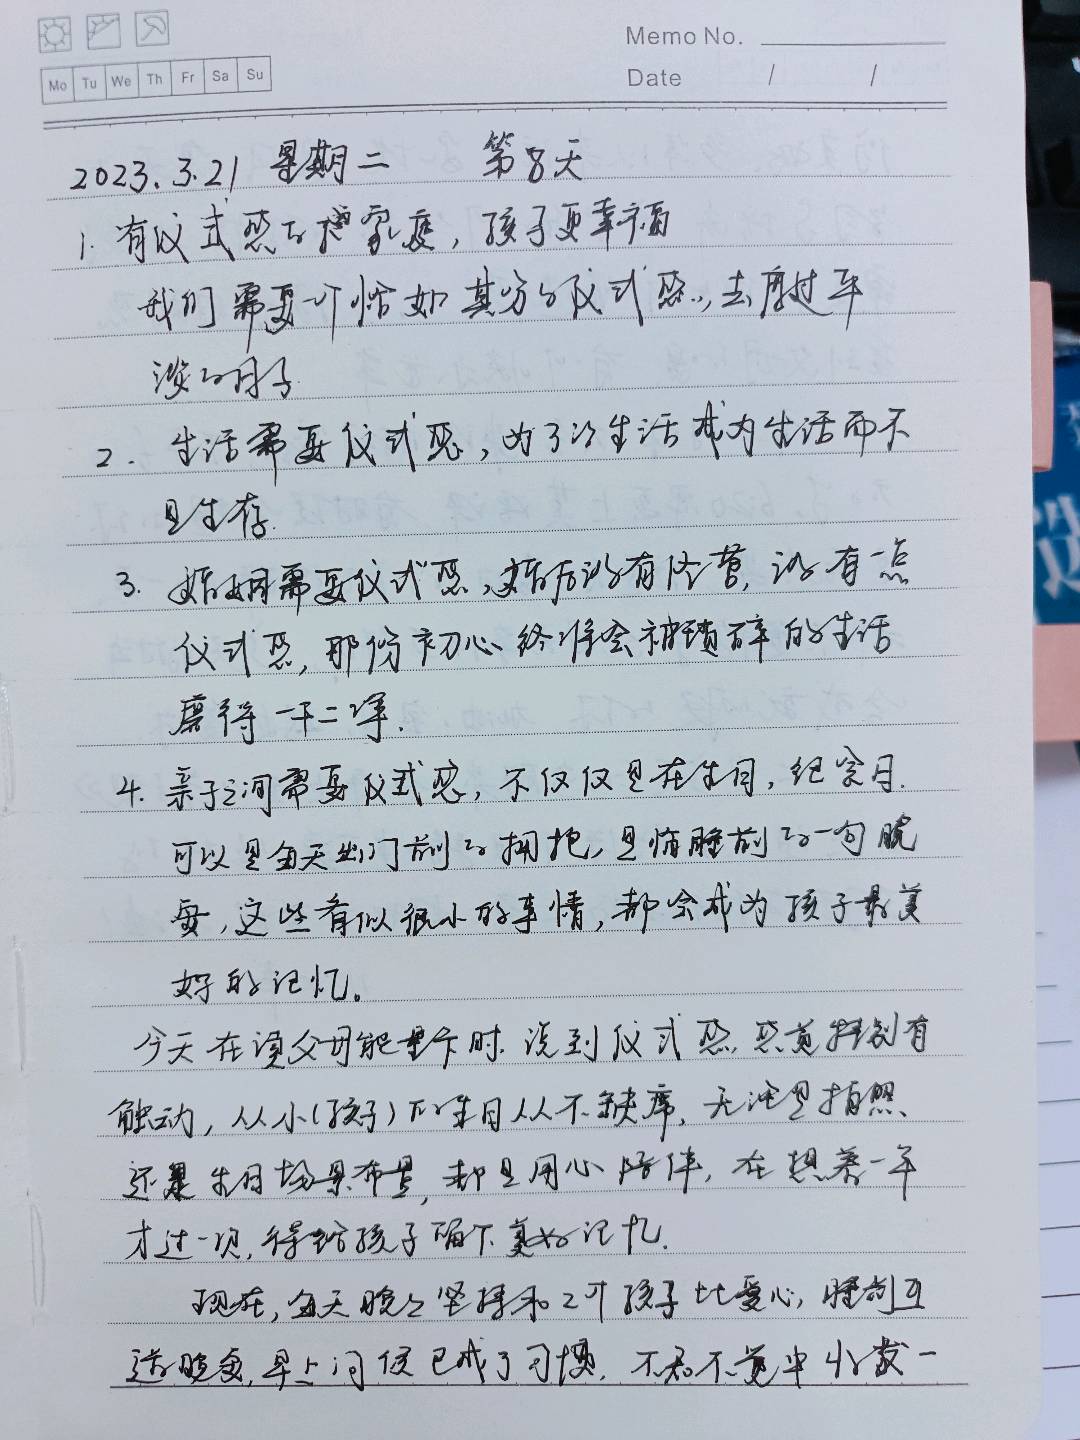 Memo No.
Date / /
Mo Tu We Th Fr Sa Su
2023.3.21 星期二 第8天
1. 有仪式感的家庭,孩子更幸福
我们需要一个恰如其分的仪式感,去度过平
淡的日子
2. 生活需要仪式感,为了让生活成为生活而不
是生存.
3. 婚姻需要仪式感,婚后没有经营,没有一点
仪式感,那份初心终将会被琐碎的生活
磨得一干二净.
4. 亲子之间需要仪式感,不仅仅是在生日,纪念日.
可以是每天出门前的拥抱,是临睡前的一句晚
安,这些看似很小的事情,都会成为孩子最美
好的记忆。
今天在读父母能量卡时.说到仪式感,感觉特别有
触动,从小(孩子)的生日从不缺席,无论是拍照、
还是生日场景布置,都是用心陪伴,在想着一年
才过一次,得给孩子留下美好记忆.
现在,每天晚上坚持和2个孩子比爱心,睡前互
道晚安,早上问候已成了习惯.不知不觉中收获一